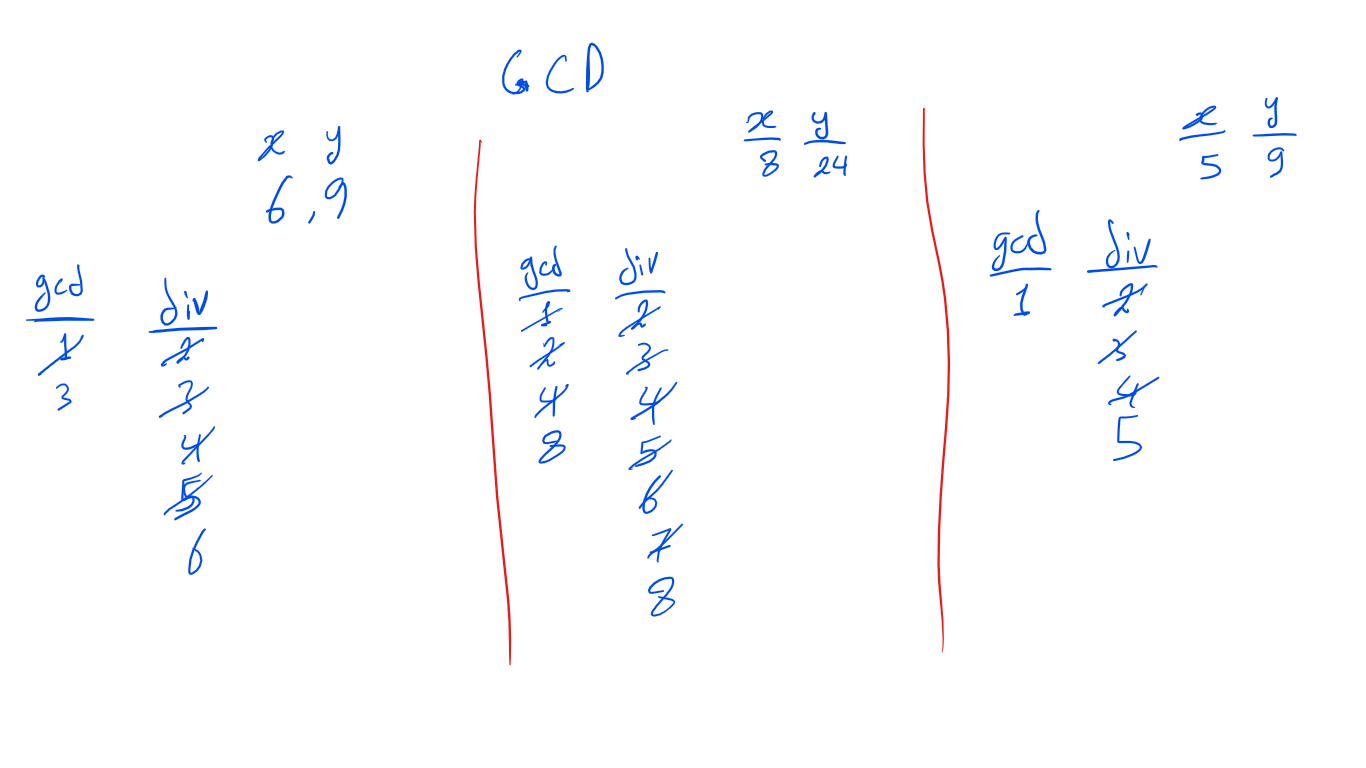 GCD
x y
6, 9
gcd div
1 2
3 3
4
5
6
x y
8 24
gcd div
1 2
2 3
4 4
8 5
6
7
8
x y
5 9
gcd div
1 2
3
4
5